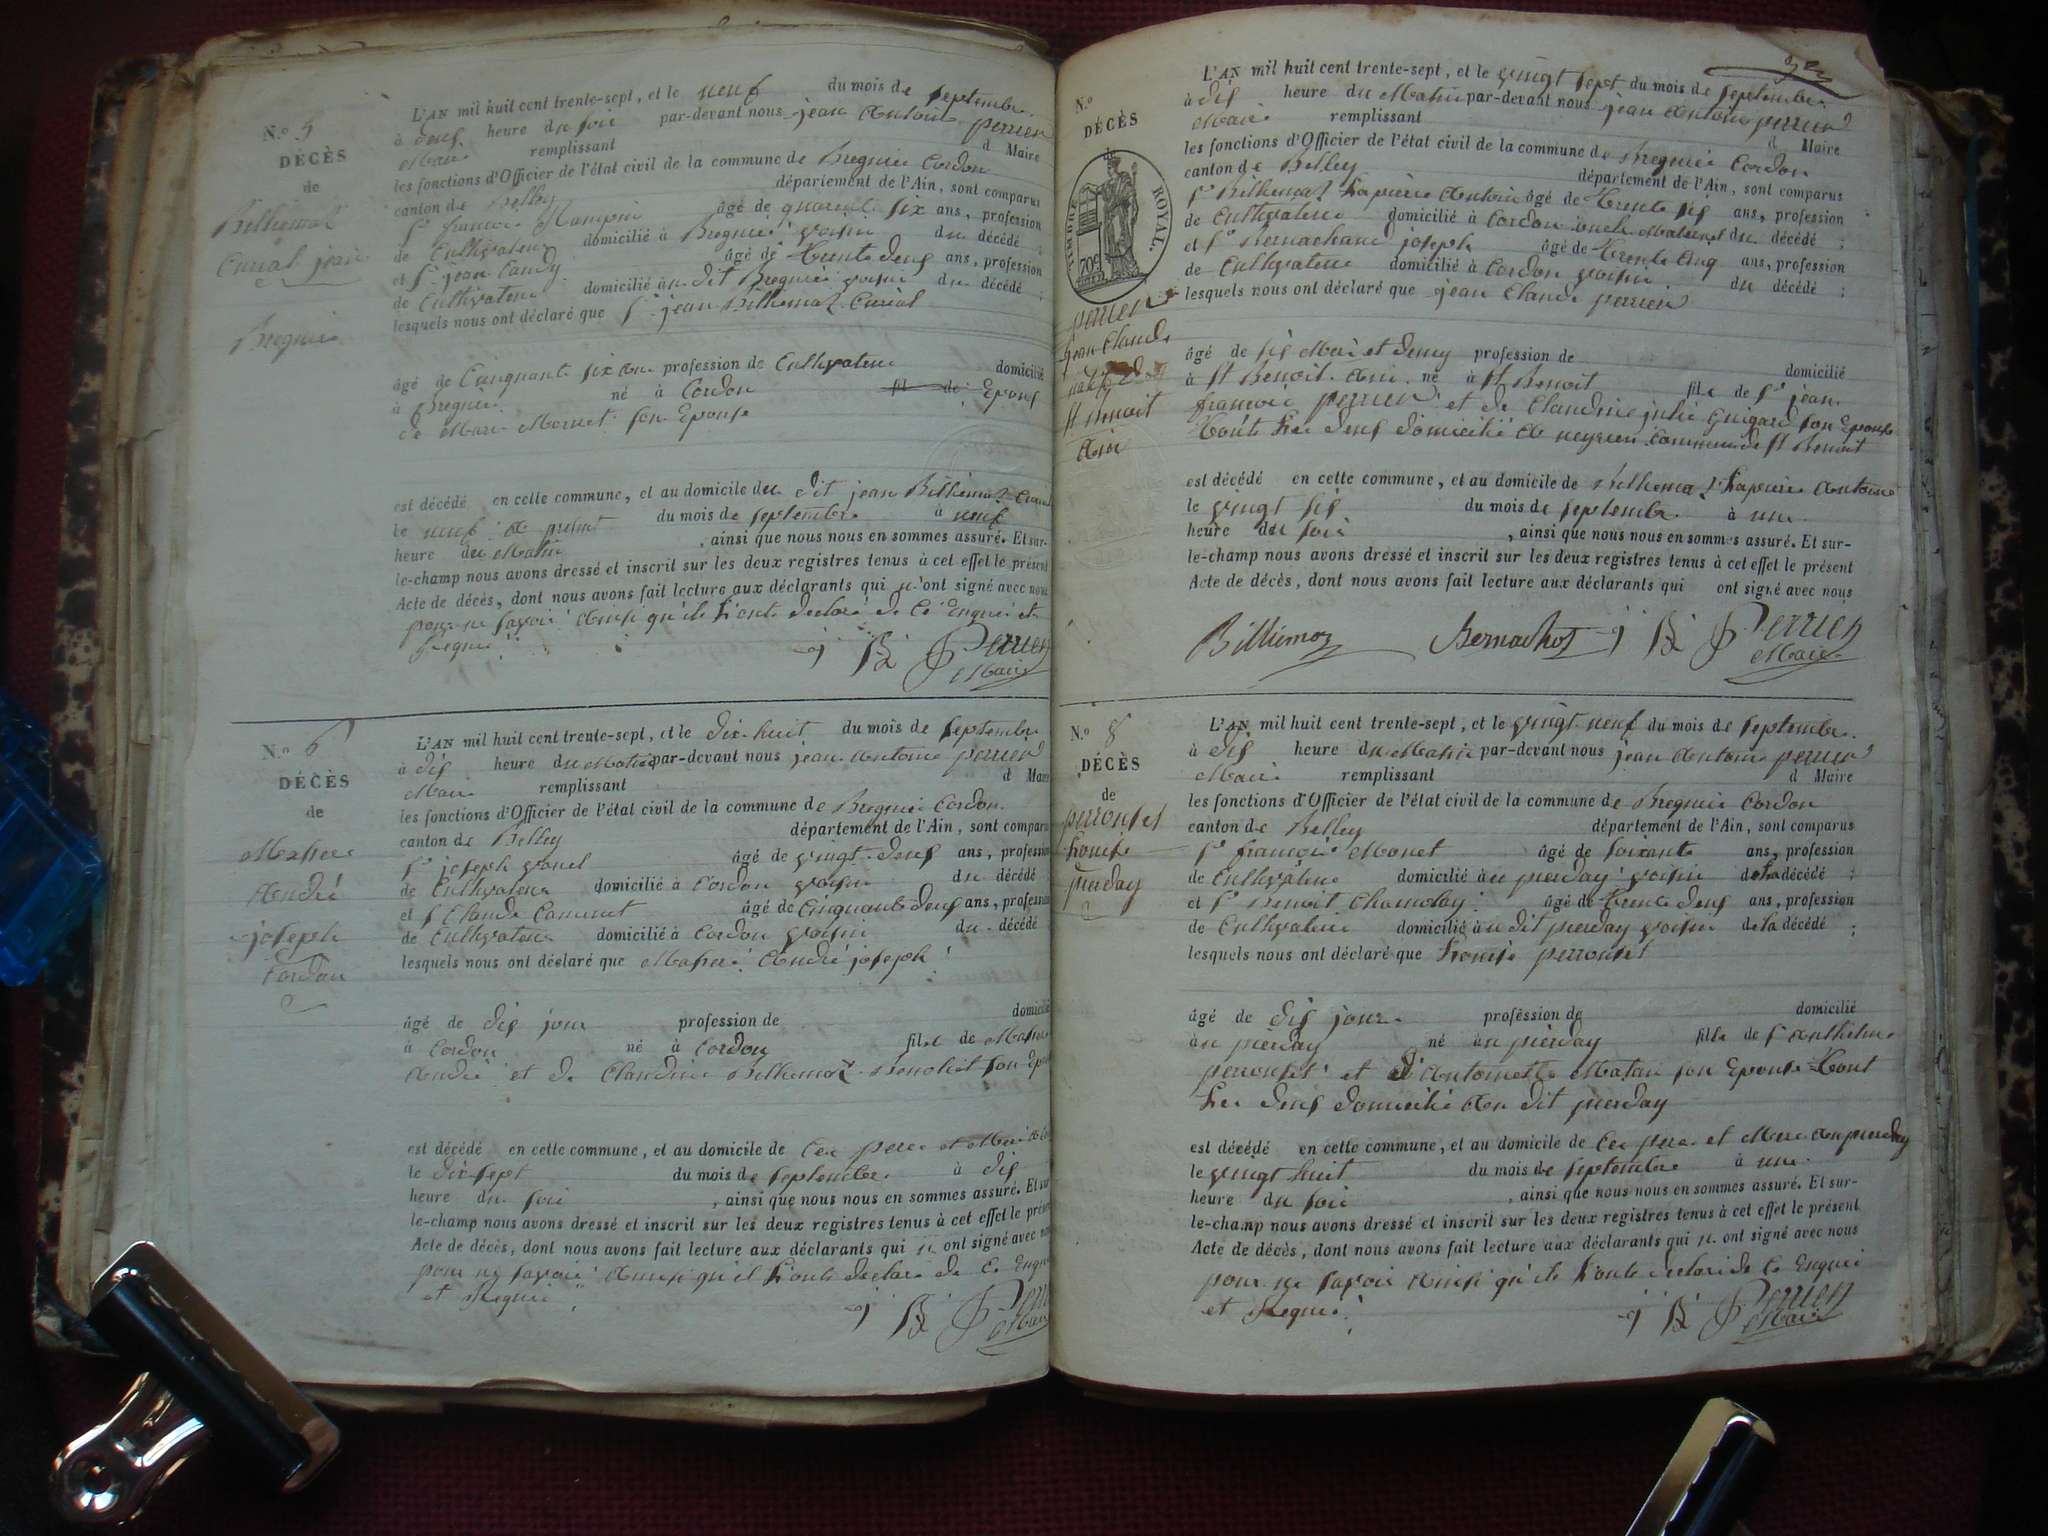 N.º 5
DÉCÈS
de
Billiemaz
Curial jean
Bregnier
L'AN mil huit cent trente-sept, et le neuf du mois de septembre
à deux heure du soir par-devant nous jean Antoine perrier
Maire remplissant d Maire
les fonctions d'Officier de l'état civil de la commune de Bregnier Cordon
canton de Belley département de l'Ain, sont comparus
Sr françois âgé de quarante six ans, profession
de Cultivateur domicilié à Bregnier voisin du décédé ;
et Sr jean Candy âgé de trente deux ans, profession
de Cultivateur domicilié au dit Bregnier voisin du décédé ;
lesquels nous ont déclaré que Sr jean Billiemaz Curial
âgé de Cinquante six ans profession de Cultivateur domicilié
à Bregnier né à Cordon fil de Epoux
de Marie Mornet son Epouse
est décédé en cette commune, et au domicile du dit jean Billiemaz Curial
le neuf du présent du mois de septembre à neuf
heure du Matin , ainsi que nous nous en sommes assuré. Et sur-
le-champ nous avons dressé et inscrit sur les deux registres tenus à cet effet le présent
Acte de décès, dont nous avons fait lecture aux déclarants qui n'ont signé avec nous
pour ne savoir Ainsi qu'ils l'ont declaré de Ce Enquis et
Requis
Perrier
Maire
N.º 6
DÉCÈS
de
André
joseph
Cordon
L'AN mil huit cent trente-sept, et le dix-huit du mois de septembre
à dix heure du Matin par-devant nous jean Antoine perrier
Maire remplissant d Maire
les fonctions d'Officier de l'état civil de la commune de Bregnier Cordon
canton de Belley département de l'Ain, sont comparus
Sr joseph âgé de vingt-deux ans, profession
de Cultivateur domicilié à Cordon voisin du décédé
et Sr Claude âgé de Cinquante deux ans, profession
de Cultivateur domicilié à Cordon voisin du décédé
lesquels nous ont déclaré que André joseph
âgé de dix jour profession de domicilié
à Cordon né à Cordon fils de
André et de Claudine Billiemaz Benoliet son Epouse
est décédé en cette commune, et au domicile de Ces pere et Mere
le dix-sept du mois de septembre à dix
heure du soir , ainsi que nous nous en sommes assuré. Et sur
le-champ nous avons dressé et inscrit sur les deux registres tenus à cet effet le présent
Acte de décès, dont nous avons fait lecture aux déclarants qui n ont signé avec nous
pour ne savoir Ainsi qu'il l'ont declaré de Ce Enquis
et Requis
Perrier
Maire
N.º
DÉCÈS
TIMBRE ROYAL.
70c
perrier
jean Claude
St Benoit
Ain
L'AN mil huit cent trente-sept, et le vingt sept du mois de septembre
à dix heure du Matin par-devant nous jean Antoine perrier
Maire remplissant d Maire
les fonctions d'Officier de l'état civil de la commune de Bregnier Cordon
canton de Belley département de l'Ain, sont comparus
Sr Billiemaz Lapierre Antoine âgé de trente six ans, profession
de Cultivateur domicilié à Cordon oncle Maternel du décédé ;
et Sr joseph âgé de trente cinq ans, profession
de Cultivateur domicilié à Cordon voisin du décédé ;
lesquels nous ont déclaré que jean Claude perrier
âgé de six Mois et demy profession de domicilié
à St Benoit Ain né à St Benoit fils de Sr jean
françois perrier et de Claudine julie Guigard son Epouse
tout les deux domicilié à neyrieu Commune de St Benoit
est décédé en cette commune, et au domicile de Billiemaz Lapierre Antoine
le vingt six du mois de septembre à une
heure du soir , ainsi que nous nous en sommes assuré. Et sur-
le-champ nous avons dressé et inscrit sur les deux registres tenus à cet effet le présent
Acte de décès, dont nous avons fait lecture aux déclarants qui ont signé avec nous
Billiemaz Bernachot Perrier
Maire
N.º 8
DÉCÈS
de
perrousset
Louise
pierday
L'AN mil huit cent trente-sept, et le vingt-neuf du mois de septembre
à dix heure du Matin par-devant nous jean Antoine perrier
Maire remplissant d Maire
les fonctions d'Officier de l'état civil de la commune de Bregnier Cordon
canton de Belley département de l'Ain, sont comparus
Sr françois Monet âgé de soixante ans, profession
de Cultivateur domicilié au pierday voisin de la décédé ;
et Sr Benoit Chamolay âgé de trente deux ans, profession
de Cultivateur domicilié au dit pierday voisin de la décédé ;
lesquels nous ont déclaré que Louise perrousset
âgé de dix jour profession de domicilié
au pierday né au pierday fille de Sr Anthelme
perrousset et d'Antoinette Matan son Epouse tout
les deux domicilié Au dit pierday
est décédé en cette commune, et au domicile de Ces pere et Mere Au pierday
le vingt huit du mois de septembre à une
heure du soir , ainsi que nous nous en sommes assuré. Et sur-
le-champ nous avons dressé et inscrit sur les deux registres tenus à cet effet le présent
Acte de décès, dont nous avons fait lecture aux déclarants qui n ont signé avec nous
pour ne savoir Ainsi qu'ils l'ont declaré de Ce Enquis
et Requis
Perrier
Maire